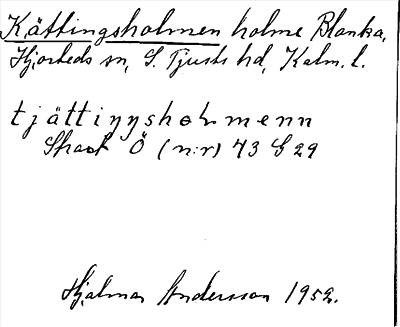 Kättingsholmen holme Blanka,
Hjorteds sn, S. Tjusts hd, Kalm. l.
tjättiŋŋshoḷmenn
Ö (n:r) 73 G 29
Hjalmar Andersson 1952.